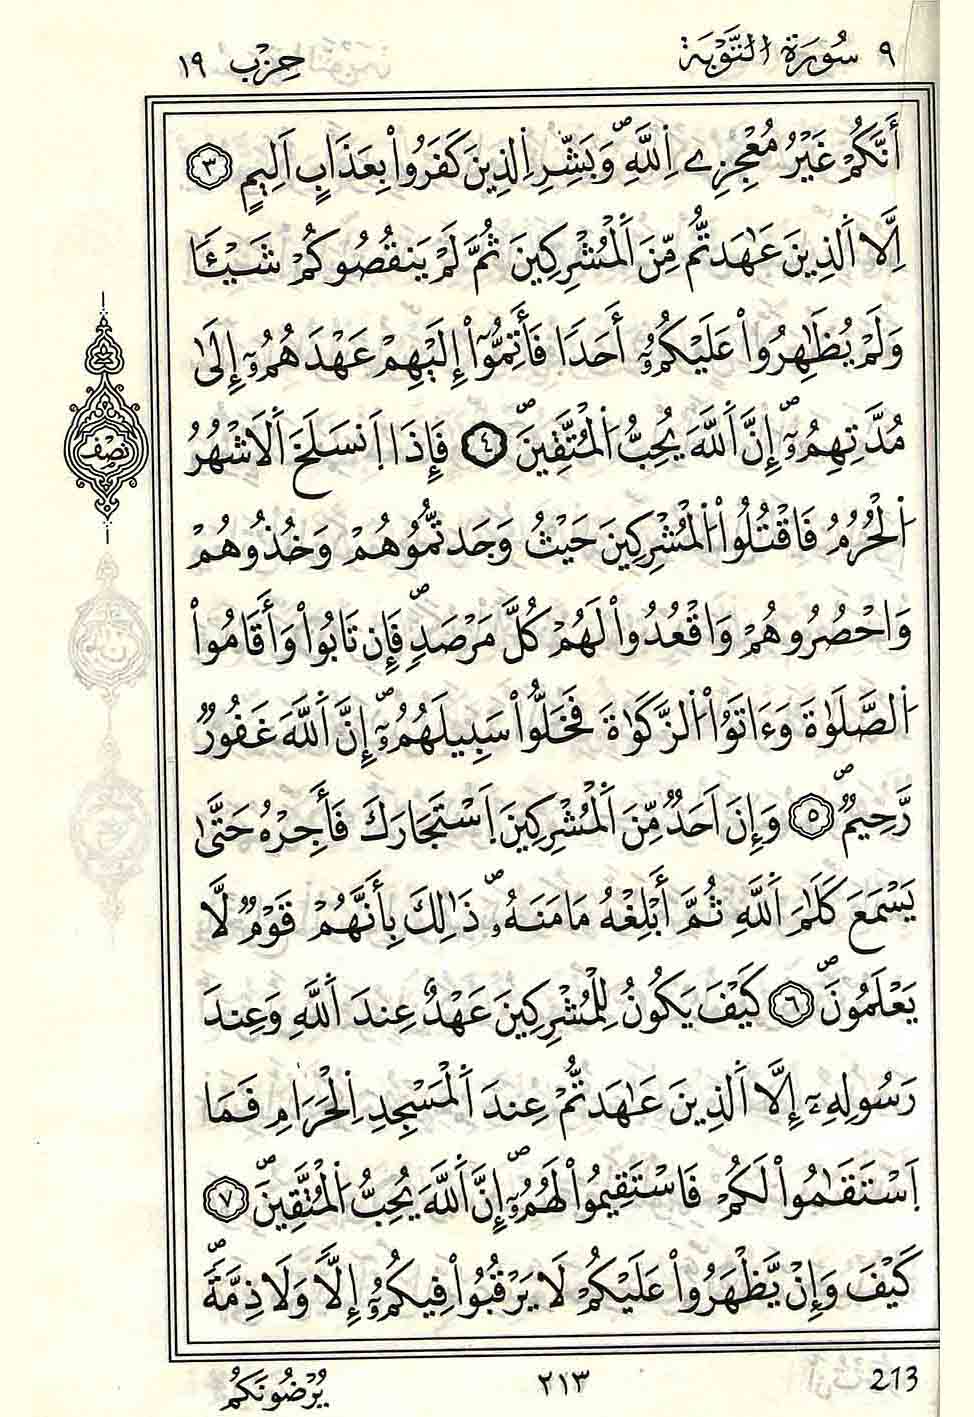 ٩ سُورَةُ التَّوْبَة
حِزْب ١٩
أَنَّكُمْ غَيْرُ مُعْجِزِے اِ۬للَّهِۖ وَبَشِّرِ اِ۬لذِينَ كَفَرُواْ بِعَذَابٍ اَلِيمٍ ٣
اِلَّا اَ۬لذِينَ عَٰهَدتُّم مِّنَ اَ۬لْمُشْرِكِينَ ثُمَّ لَمْ يَنقُصُوكُمْ شَيْـٔاٗ
وَلَمْ يُظَٰهِرُواْ عَلَيْكُمُۥٓ أَحَداٗ فَأَتِمُّوٓاْ إِلَيْهِمْ عَهْدَهُمُۥٓ إِلَىٰ
مُدَّتِهِمُۥٓۖ إِنَّ اَ۬للَّهَ يُحِبُّ اُ۬لْمُتَّقِينَۖ ٤ فَإِذَا اَ۪نسَلَخَ اَ۬لَاشْهُرُ
اُ۬لْحُرُمُ فَاقْتُلُواْ اُ۬لْمُشْرِكِينَ حَيْثُ وَجَدتُّمُوهُمْ وَخُذُوهُمْ
وَاحْصُرُوهُمْ وَاقْعُدُواْ لَهُمْ كُلَّ مَرْصَدٖۖ فَإِن تَابُواْ وَأَقَامُواْ
اُ۬لصَّلَوٰةَ وَءَاتَوُاْ اُ۬لزَّكَوٰةَ فَخَلُّواْ سَبِيلَهُمُۥٓۖ إِنَّ اَ۬للَّهَ غَفُورٞ
رَّحِيمٞۖ ٥ وَإِنَ اَحَدٞ مِّنَ اَ۬لْمُشْرِكِينَ اَ۪سْتَجَارَكَ فَأَجِرْهُ حَتَّىٰ
يَسْمَعَ كَلَٰمَ اَ۬للَّهِ ثُمَّ أَبْلِغْهُ مَامَنَهُۥۖ ذَٰلِكَ بِأَنَّهُمْ قَوْمٞ لَّا
يَعْلَمُونَۖ ٦ كَيْفَ يَكُونُ لِلْمُشْرِكِينَ عَهْدٌ عِندَ اَ۬للَّهِ وَعِندَ
رَسُولِهِۦٓ إِلَّا اَ۬لذِينَ عَٰهَدتُّمْ عِندَ اَ۬لْمَسْجِدِ اِ۬لْحَرَامِ فَمَا
اَ۪سْتَقَٰمُواْ لَكُمْ فَاسْتَقِيمُواْ لَهُمُۥٓۖ إِنَّ اَ۬للَّهَ يُحِبُّ اُ۬لْمُتَّقِينَۖ ٧
كَيْفَ وَإِنْ يَّظْهَرُواْ عَلَيْكُمْ لَا يَرْقُبُواْ فِيكُمُۥٓ إِلّاٗ وَلَا ذِمَّةٗۖ
نِصْف
213
٢١٣
يُرْضُونَكُم